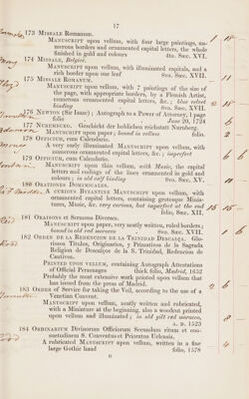 17
173 MISSALE ROMANUM.
MANUSCRIPT upon vellum, with four large paintings, numerous borders and ornamented capital letters, the whole
finished in gold and colours
SÆC. XVI.
174 MISSALE,
MANUSCRIPT upon vellum, with illuminated capitals, and a
rich border upon one leaf
SÆC. XVII.
175 MISSALE ROMANUM.
MANUSCRIPT upon vellum, with 7 paintings of the size of
the page, with appropriate borders, by a Flemish Artist,
numerous ornamented capital letters, &c.; blue velvet
binding
SÆC. XVII.
176 NEWTON (Sir Isaac); Autograph to a Power of Attorney, 1 page
folio
June 20, 1724
177 NUREMBURG. Geschicht der hochlichen richstatt Nurnberg.
MANUSCRIPT upon paper; bound in vellum
folio.
178 OFFICIUM, cum Calendario.
A very early illuminated MANUSCRIPT upon vellum, with
numerous ornamented capital letters, &c.; imperfect
179 OFFICIUM, cum Calendario.
MANUSCRIPT upon thin vellum, with Music; the capital
letters and endings of the lines ornamented in gold and
colours; in old calf binding
SÆC. XV.
180 ORATIONES DOMINICALES.
A CURIOUS BYZANTINE MANUSCRIPT upon vellum, with
ornamented capital letters, containing grotesque Miniatures, Music, &c. very curious, but imperfect at the end
folio, SÆC. XII.
181 ORATIONS et Sermons Diverses.
MANUSCRIPT upon paper, very neatly written, ruled borders;
bound in old red morocco
SÆC. XVII.
182 ORDEN DE LA REDENCION DE LA TRINIDAD DESCALÇA. Gloriosos Titulos, Originarios, y Privativos de la Sagrada
Religion de Descalços de la S. Trinidad, Redencion de
Cautivos.
PRINTED UPON VELLUM, containing Autograph Attestations
of Official Personages
thick folio, Madrid, 1652
Probably the most extensive work printed upon vellum that
has issued from the press of Madrid.
183 ORDER of Service for taking the Veil, according to the use of a
Venetian Convent.
MANUSCRIPT upon vellum, neatly written and rubricated,
with a Miniature at the beginning, also a woodcut printed
upon vellum and illuminated; in old gilt red morocco,
A. D. 1523
184 ORDINARIUM Divinorum Officiorum Secundum ritum et consuetudinem S. Conventus et Prioratus Urlensis.
A rubricated MANUSCRIPT upon vellum, written in a fine
large Gothic hand
folio, 1578
D